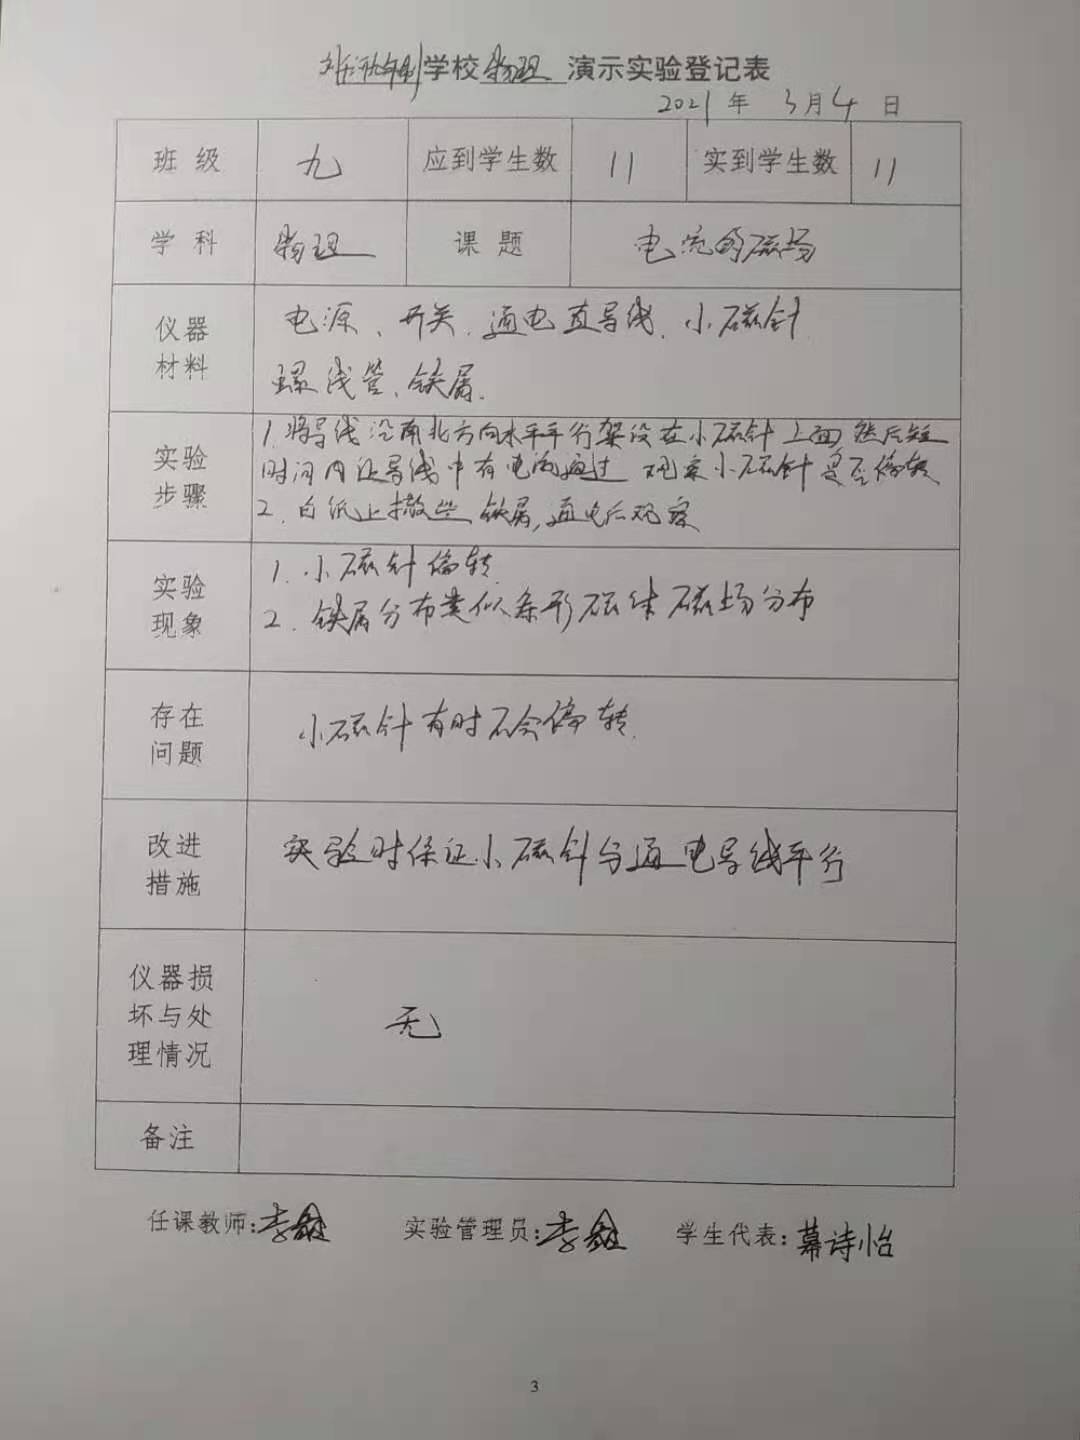 学校物理演示实验登记表
2021年3月4日
班级 九 应到学生数 11 实到学生数 11
学科 物理 课题 电流的磁场
仪器材料 电源、开关、通电直导线、小磁针
螺线管、铁屑.
实验步骤 1.将导线沿南北方向水平平行架设在小磁针上面 然后短
时间内让导线中有电流通过 观察小磁针是否偏转
2.白纸上撒些铁屑,通电后观察
实验现象 1.小磁针偏转
2.铁屑分布类似条形磁体磁场分布
存在问题 小磁针有时不会偏转.
改进措施 实验时保证小磁针与通电导线平行
仪器损坏与处理情况 无
备注
任课教师:李 实验管理员:李 学生代表:幕诗怡
3